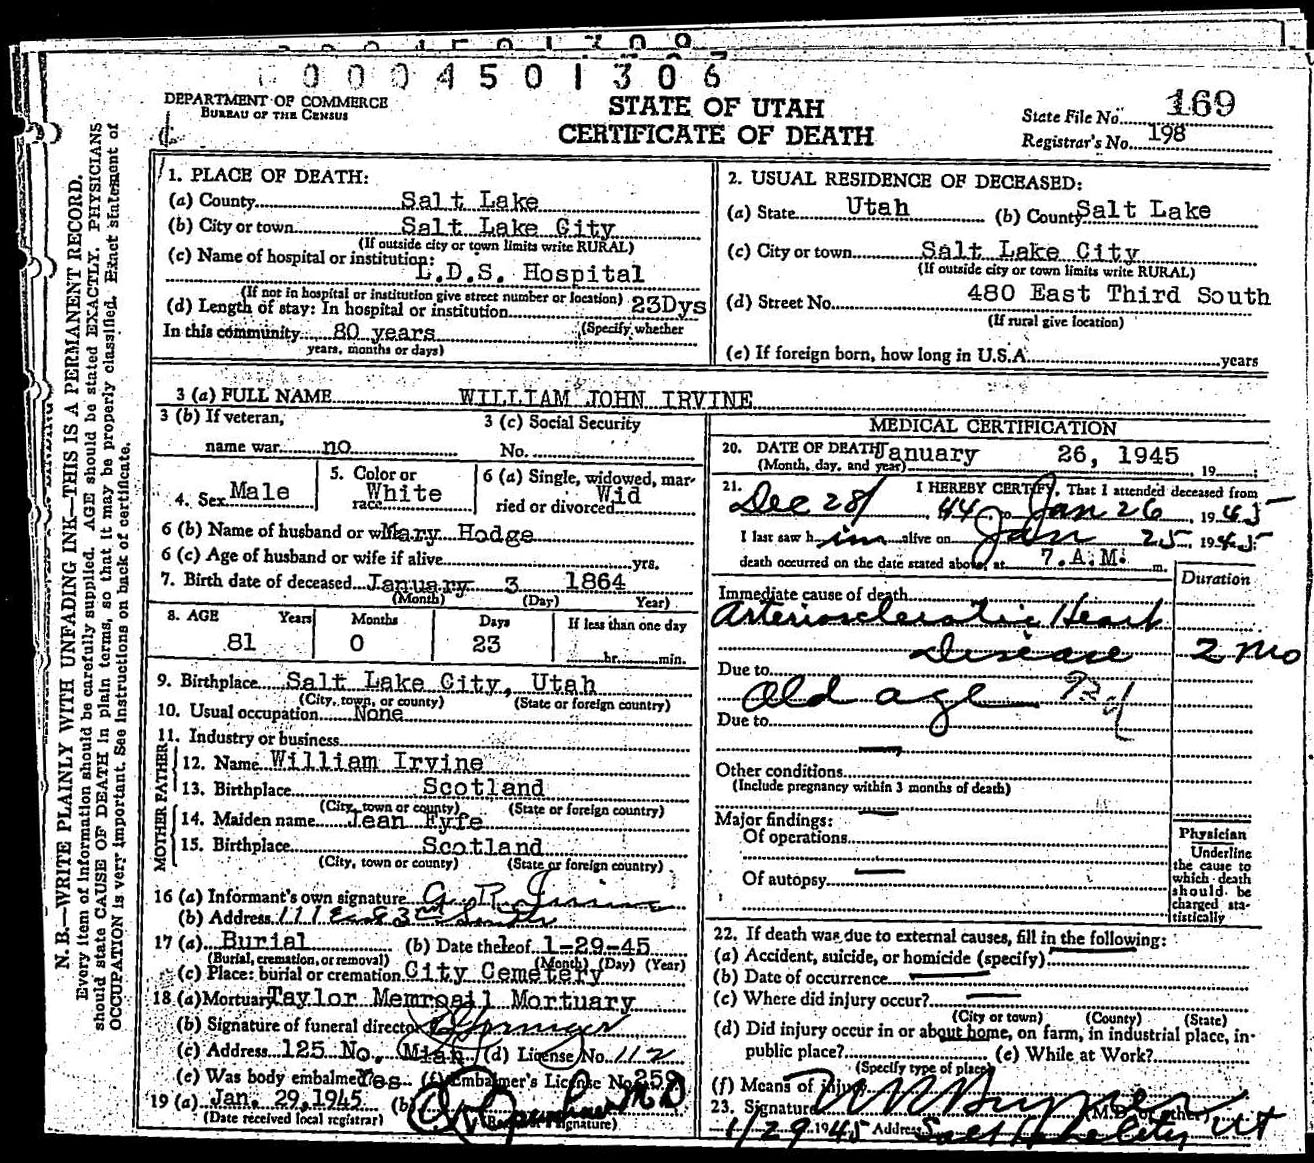 0004501306
DEPARTMENT OF COMMERCE
BUREAU OF THE CENSUS
STATE OF UTAH
CERTIFICATE OF DEATH
State File No. 169
Registrar's No. 198
N. B.—WRITE PLAINLY WITH UNFADING INK—THIS IS A PERMANENT RECORD.
Every item of information should be carefully supplied. AGE should be stated EXACTLY. PHYSICIANS
should state CAUSE OF DEATH in plain terms, so that it may be properly classified. Exact statement of
OCCUPATION is very important. See instructions on back of certificate.
1. PLACE OF DEATH:
(a) County Salt Lake
(b) City or town Salt Lake City
(If outside city or town limits write RURAL)
(c) Name of hospital or institution:
L.D.S. Hospital
(If not in hospital or institution give street number or location)
(d) Length of stay: In hospital or institution 23Dys
(Specify whether
In this community 80 years
years, months or days)
2. USUAL RESIDENCE OF DECEASED:
(a) State Utah (b) County Salt Lake
(c) City or town Salt Lake City
(If outside city or town limits write RURAL)
(d) Street No. 480 East Third South
(If rural give location)
(e) If foreign born, how long in U.S.A. years
3 (a) FULL NAME WILLIAM JOHN IRVINE
3 (b) If veteran,
name war no
3 (c) Social Security
No.
4. Sex Male
5. Color or
race White
6 (a) Single, widowed, mar-
ried or divorced Wid
6 (b) Name of husband or wife Mary Hodge
6 (c) Age of husband or wife if alive yrs.
7. Birth date of deceased January 3 1864
(Month) (Day) Year)
8. AGE Years Months Days If less than one day
81 0 23 hr. min.
9. Birthplace Salt Lake City, Utah
(City, town, or county) (State or foreign country)
10. Usual occupation None
11. Industry or business
FATHER
12. Name William Irvine
13. Birthplace Scotland
(City, town or county) (State or foreign country)
MOTHER
14. Maiden name Jean Fyfe
15. Birthplace Scotland
(City, town or county) (State or foreign country)
16 (a) Informant's own signature G. R. Irvine
(b) Address 111 E 3rd South
17 (a) Burial (b) Date thereof 1-29-45
(Burial, cremation, or removal) (Month) (Day) (Year)
(c) Place: burial or cremation City Cemetery
18 (a) Mortuary Taylor Memroail Mortuary
(b) Signature of funeral director
(c) Address 125 No. Main (d) License No. 112
(e) Was body embalmed Yes (f) Embalmer's License No. 259
19 (a) Jan. 29, 1945 (b) M D
(Date received local registrar) (Registrar's signature)
MEDICAL CERTIFICATION
20. DATE OF DEATH January 26, 1945
(Month, day, and year) 19
21. I HEREBY CERTIFY, That I attended deceased from
Dec 28/ 44 to Jan 26 1945
I last saw him alive on Jan 25, 1945
death occurred on the date stated above, at 7.A.M. m.
Duration
Immediate cause of death
Arteriosclerotic Heart
Disease 2 mo
Due to
Old age 93d
Due to
Other conditions
(Include pregnancy within 3 months of death)
Major findings:
Of operations
Of autopsy
Physician
Underline
the cause to
which death
should be
charged sta-
tistically
22. If death was due to external causes, fill in the following:
(a) Accident, suicide, or homicide (specify)
(b) Date of occurrence
(c) Where did injury occur?
(City or town) (County) (State)
(d) Did injury occur in or about home, on farm, in industrial place, in-
public place? (e) While at Work?
(Specify type of place)
(f) Means of injury
23. Signature (M.D. or other)
1/29 1945 Address Salt Lake City Ut